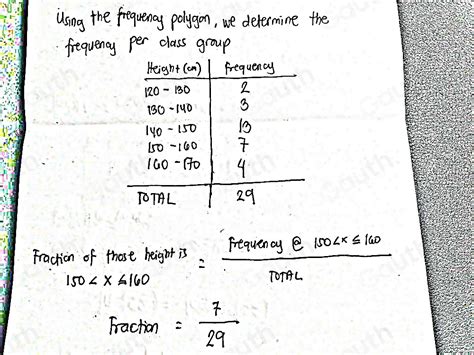 Using the frequency polygon, we determine the
frequency per class group
Height (cm) frequency
120 - 130 2
130 - 140 3
140 - 150 13
150 - 160 7
160 - 170 4
TOTAL 29
Fraction of those height is = frequency @ 150 < x ≤ 160
150 < x ≤ 160 TOTAL
Fraction = 7
29